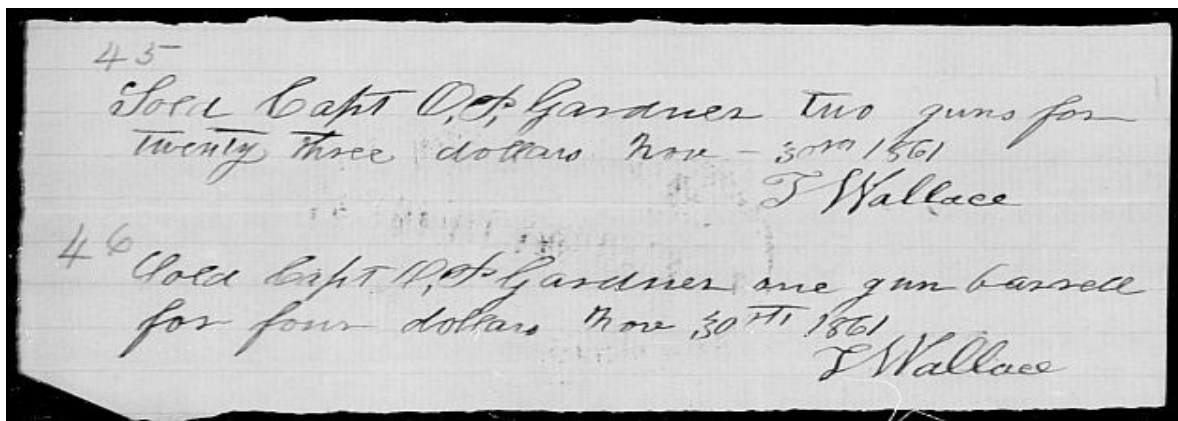 45
Sold Capt O, P, Gardner two guns for
twenty three dollars Nov - 30th 1861
T Wallace
46
Sold Capt O, P Gardner one gun barrell
for four dollars Nov 30th 1861
T Wallace